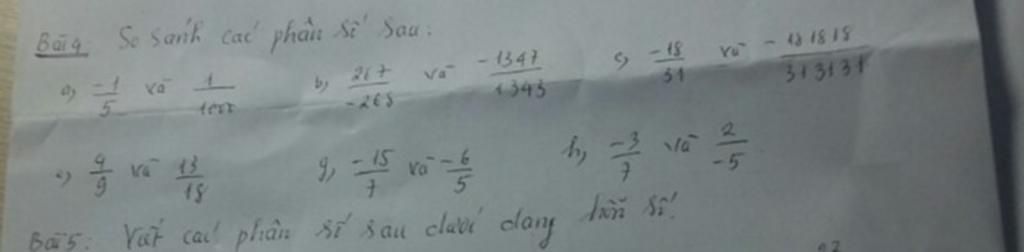 Bài 4: So sánh các phân số sau:
a) -1/5 và 1/1000 b) 267/-268 và -1347/1343 c) -18/31 và -181818/313131
e) 9/9 và 13/18 g) -15/7 và -6/5 h) -3/7 và 2/-5
Bài 5: Viết các phân số sau dưới dạng hỗn số: